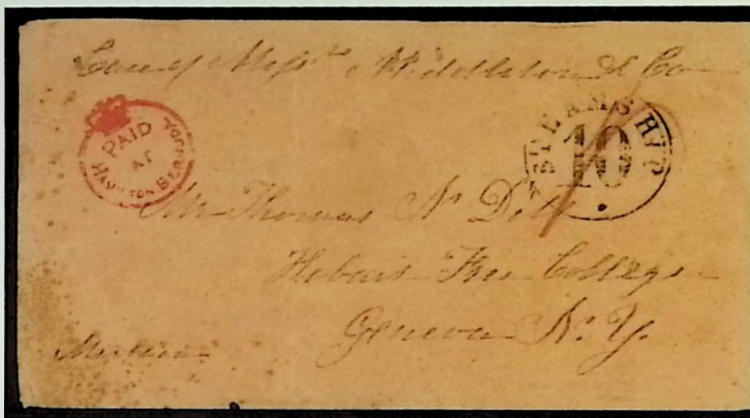 Care of Messrs Middleton & Co
PAID
AT
HAMILTON BERMUDA
STEAMSHIP
10
Mr Thomas N. Dill
Hobart Free College
Geneva N. Y.